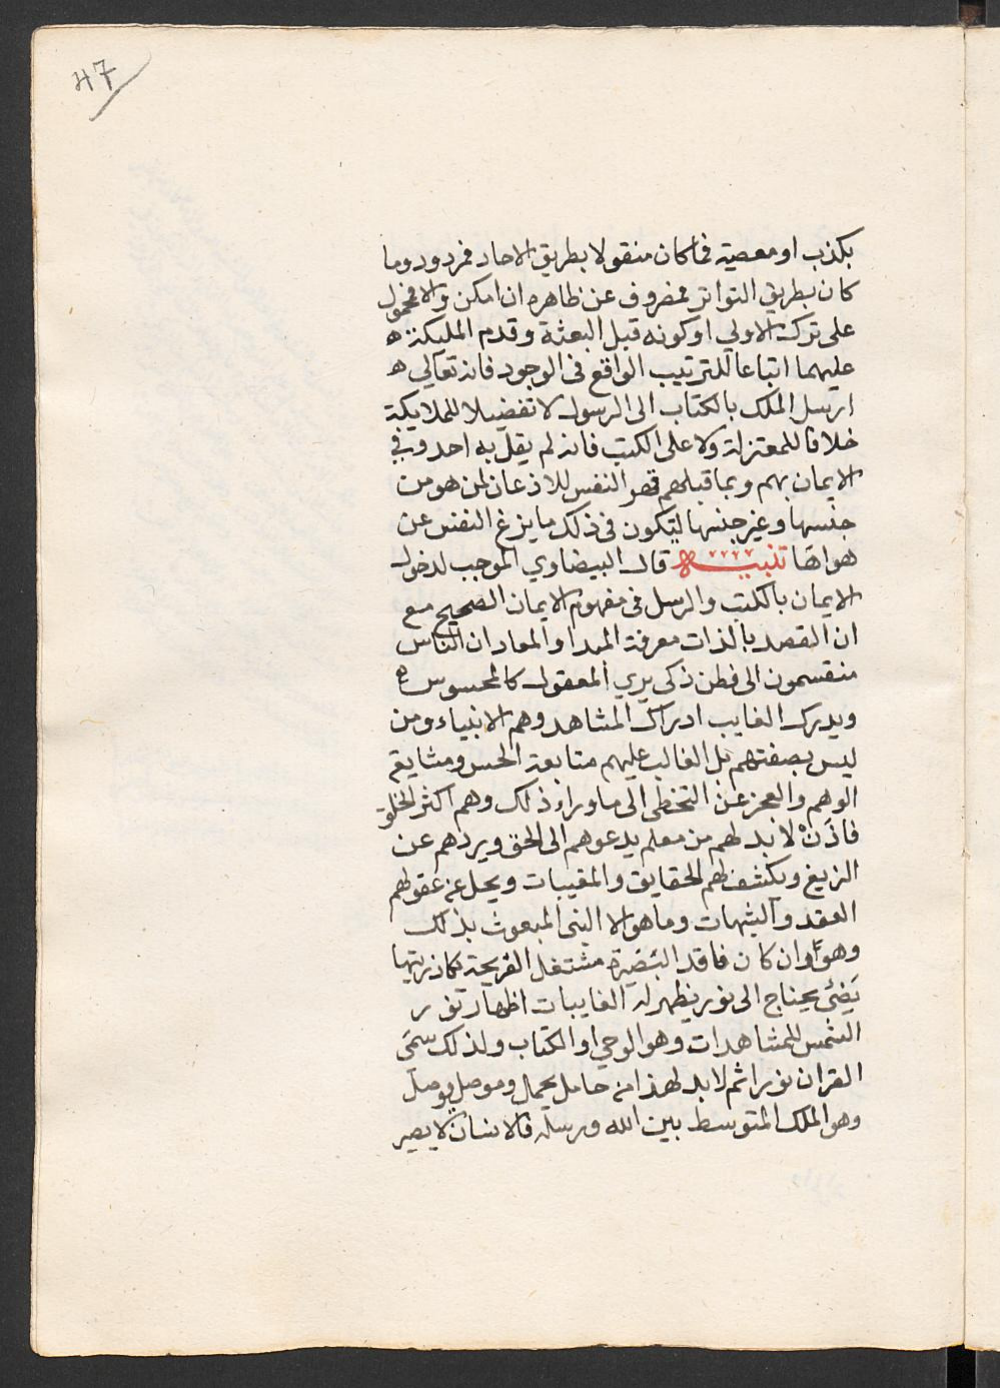 47
بكذب او معصية فما كان منقولا بطريق الاحاد فمردود وما
كان بطريق التواتر فمصروف عن ظاهره ان امكن والا فمحمول
على ترك الاولي او كونه قبل البعثة وقدم المليكة ه
عليهما اتباعا للترتيب الواقع فى الوجود فانه تعالي ه
ارسل الملك بالكتاب الى الرسول لا تفضيلا للملايكة
خلافا للمعتزلة ولا على الكتب فانه لم يقل به احد وفي
الايمان بهم وبما قبلهم قهر النفس للاذعان لمن هو من
جنسها وغير جنسها ليكون فى ذلك ما يزغ النفس عن
هواها تنبيه قال البيضاوي الموجب لدخول
الايمان بالكتب والرسل فى مفهوم الايمان الصحيح مع
ان القصد بالذات معرفة المبدا والمعاد ان الناس
منقسمون الى فطن ذكي يري المعقول كالمحسوس ه
ويدرك الغايب ادراك المشاهد وهم الانبياء ومن
ليس بصفتهم بل الغالب عليهم متابعة الحس ومشايعة
الوهم والعجز عن التخطي الى ما وراء ذلك وهم اكثر الخلق
فاذن لا بد لهم من معلم يدعوهم الى الحق ويردهم عن
الزيغ ويكشف لهم الحقايق والمغيبات ويحل عن عقولهم
العقد والشبهات وما هو الا النبى المبعوث بذلك
وهو وان كان فاقد البصيرة مشتغل القريحة يكاد زيتها
يضئ يحتاج الى نور يظهر له الغايبات اظهار نور
الشمس للمشاهدات وهو الوحي او الكتاب ولذلك سمى
القران نورا ثم لابد لهذا من حامل يحمل وموصل يوصل
وهو الملك المتوسط بين الله ورسله فالانسان لا يصير